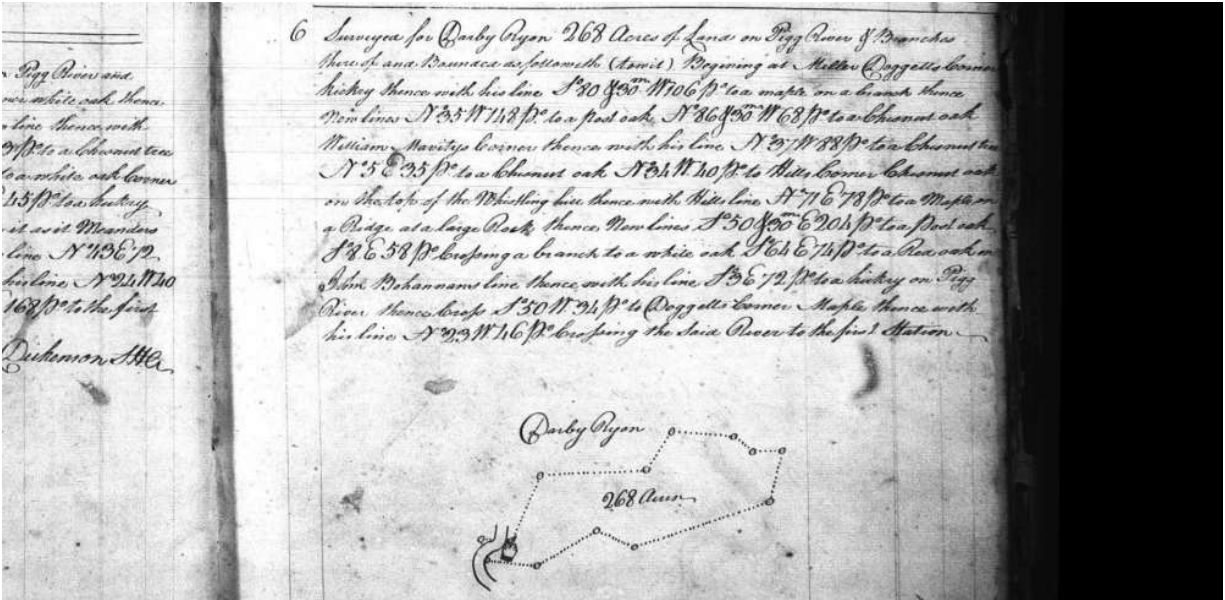 n Pigg River and
ner white oak thence
s line thence with
3 Po to a Chesnut tree
to a white oak Corner
45 Po to a hickry
it as it Meanders
line No 43 E 72
his line No 24 W 40
168 Po to the first
Dickenson
6 Surveyed for Darby Ryon 268 Acres of Land on Pigg River & Branches
there of and Bounded as followeth (towit) Begining at Miller Doggetts Corner
hickry thence with his line So 80 & 30m W 106 Po to a maple on a branch thence
New lines No 35 W 148 Po to a Post oak No 86 & 30m W 68 Po to a Chesnut oak
William Mavitys Corner thence with his line No 37 W 88 Po to a Chesnut tree
No 5 E 35 Po to a Chesnut oak No 34 W 40 Po to Hills Corner Chesnut oak
on the top of the Whistling hill thence with Hills line No 71 E 78 Po to a Maple on
a Ridge at a large Rock thence New lines So 50 & 30m E 204 Po to a Post oak
So 8 E 58 Po Crossing a branch to a white oak So 64 E 74 Po to a Red oak in
John Bohannans line thence with his line So 3 E 72 Po to a hickry on Pigg
River thence Cross So 50 W 34 Po to Doggetts Corner Maple thence with
his line No 23 W 46 Po Crossing the Said River to the first Station
Darby Ryon
268 Acres